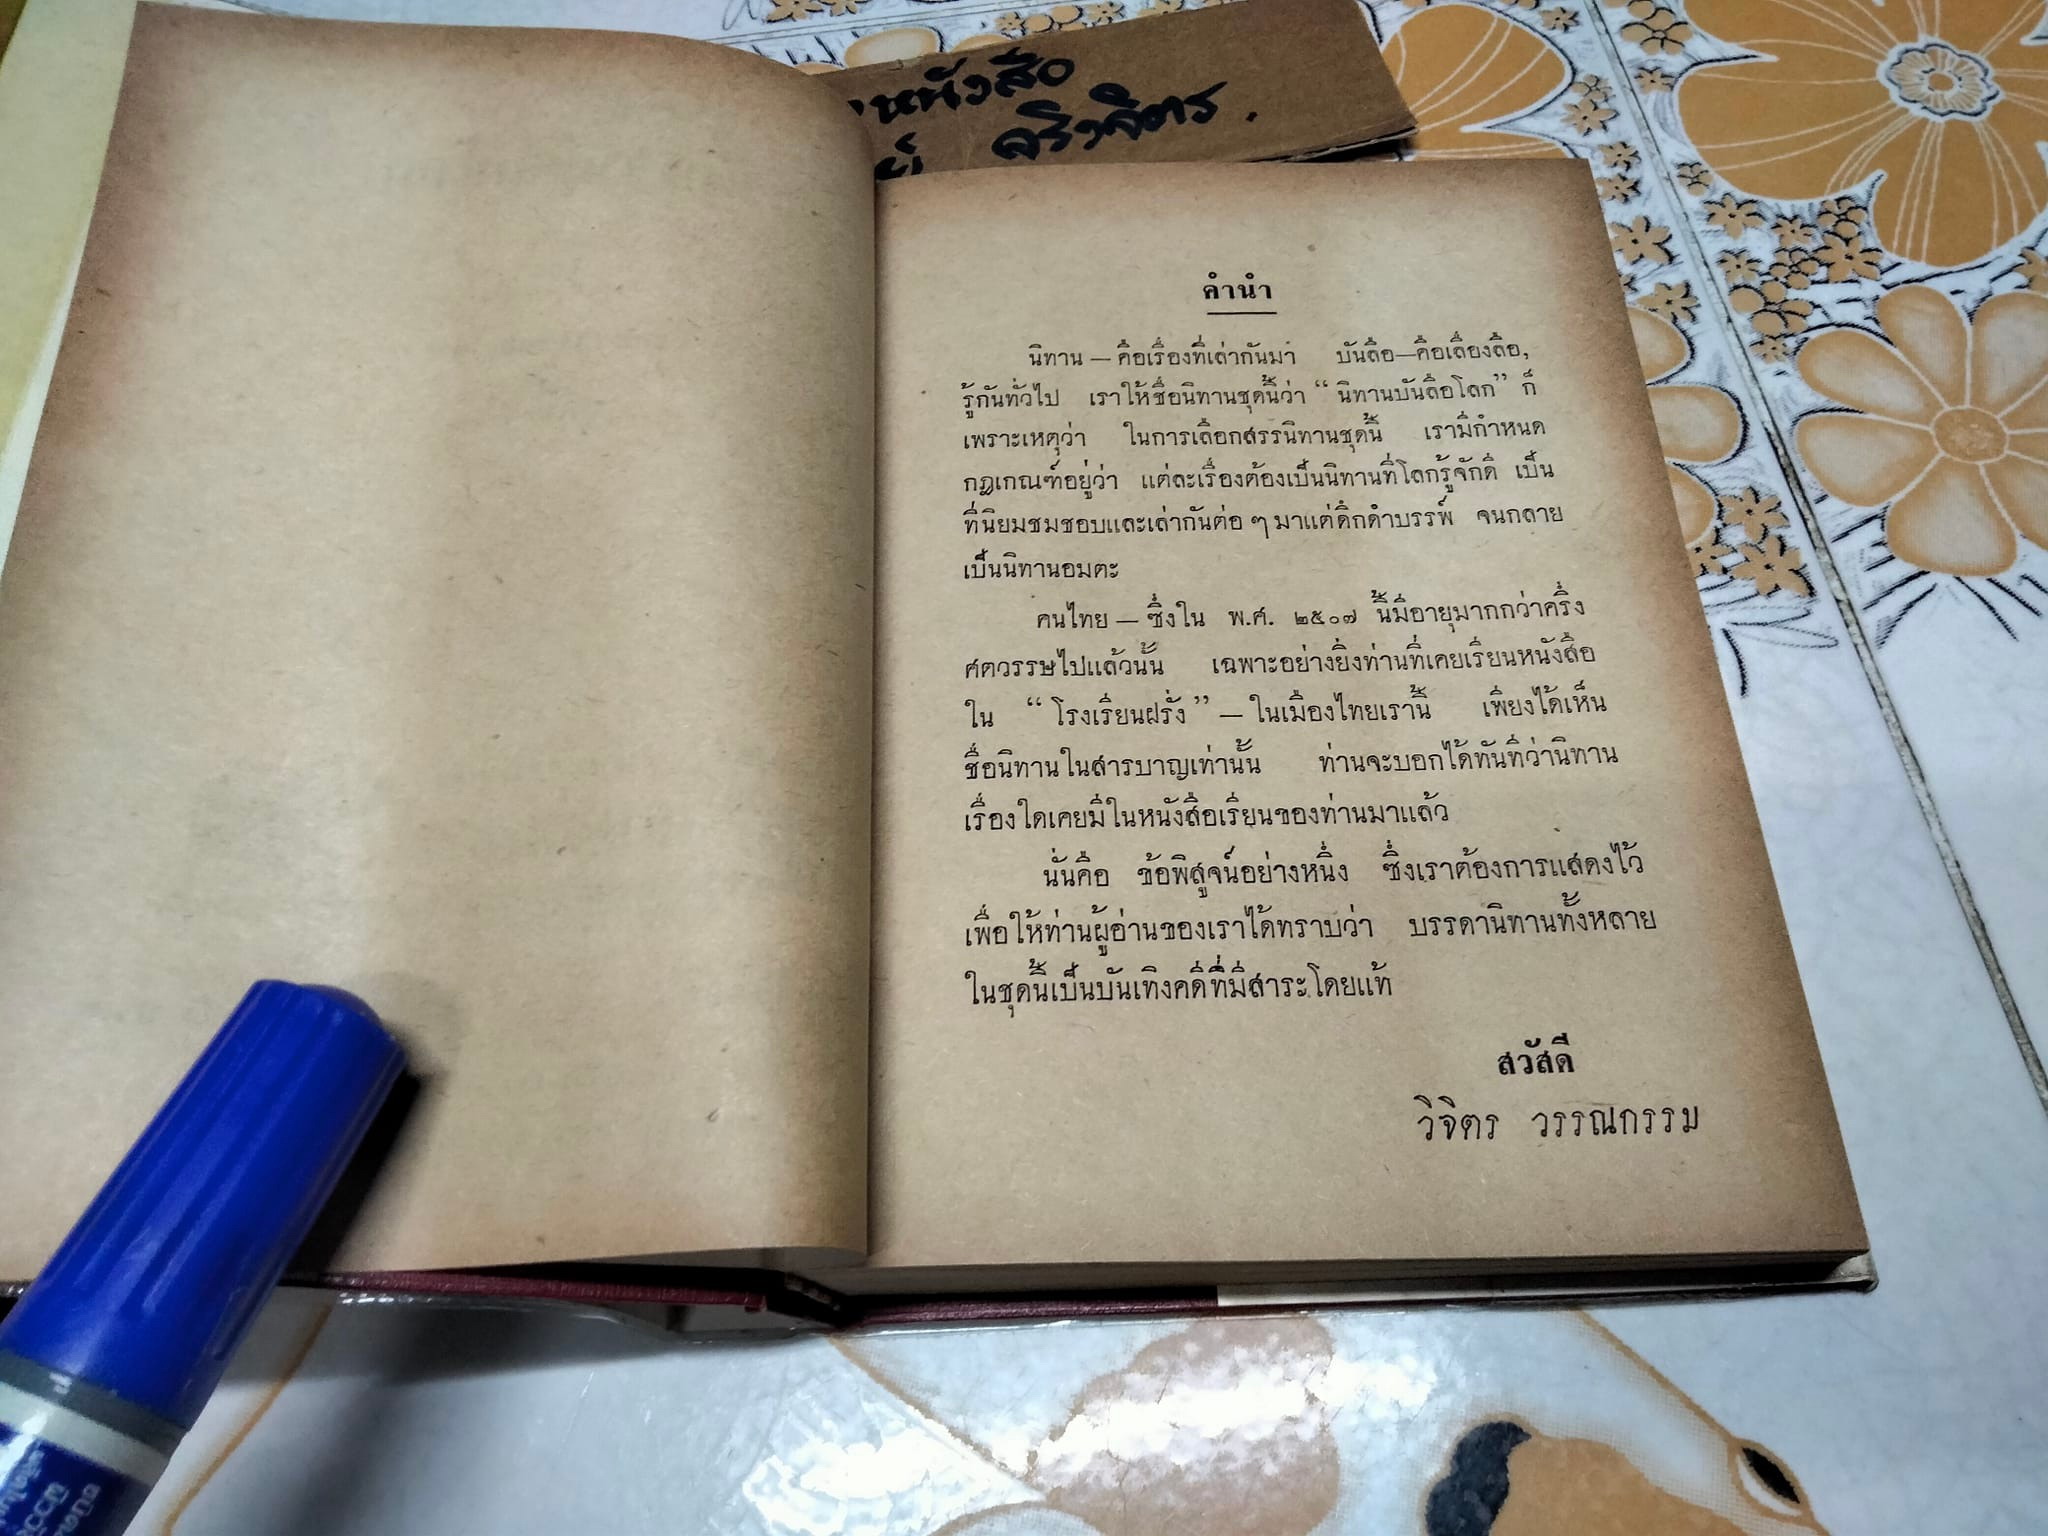 หนังสือ
จริงจิตร.
คำนำ
นิทาน — คือเรื่องที่เล่ากันมา บันลือ—คือเลื่องลือ,
รู้กันทั่วไป เราให้ชื่อนิทานชุดนี้ว่า “นิทานบันลือโลก” ก็
เพราะเหตุว่า ในการเลือกสรรนิทานชุดนี้ เรามีกำหนด
กฎเกณฑ์อยู่ว่า แต่ละเรื่องต้องเป็นนิทานที่โลกรู้จักดี เป็น
ที่นิยมชมชอบและเล่ากันต่อ ๆ มาแต่ดึกดำบรรพ์ จนกลาย
เป็นนิทานอมตะ
คนไทย — ซึ่งใน พ.ศ. ๒๕๐๗ นี้มีอายุมากกว่าครึ่ง
ศตวรรษไปแล้วนั้น เฉพาะอย่างยิ่งท่านที่เคยเรียนหนังสือ
ใน “โรงเรียนฝรั่ง” — ในเมืองไทยเรานี้ เพียงได้เห็น
ชื่อนิทานในสารบาญเท่านั้น ท่านจะบอกได้ทันทีว่านิทาน
เรื่องใดเคยมีในหนังสือเรียนของท่านมาแล้ว
นั่นคือ ข้อพิสูจน์อย่างหนึ่ง ซึ่งเราต้องการแสดงไว้
เพื่อให้ท่านผู้อ่านของเราได้ทราบว่า บรรดานิทานทั้งหลาย
ในชุดนี้เป็นบันเทิงคดีที่มีสาระโดยแท้
สวัสดี
วิจิตร วรรณกรรม